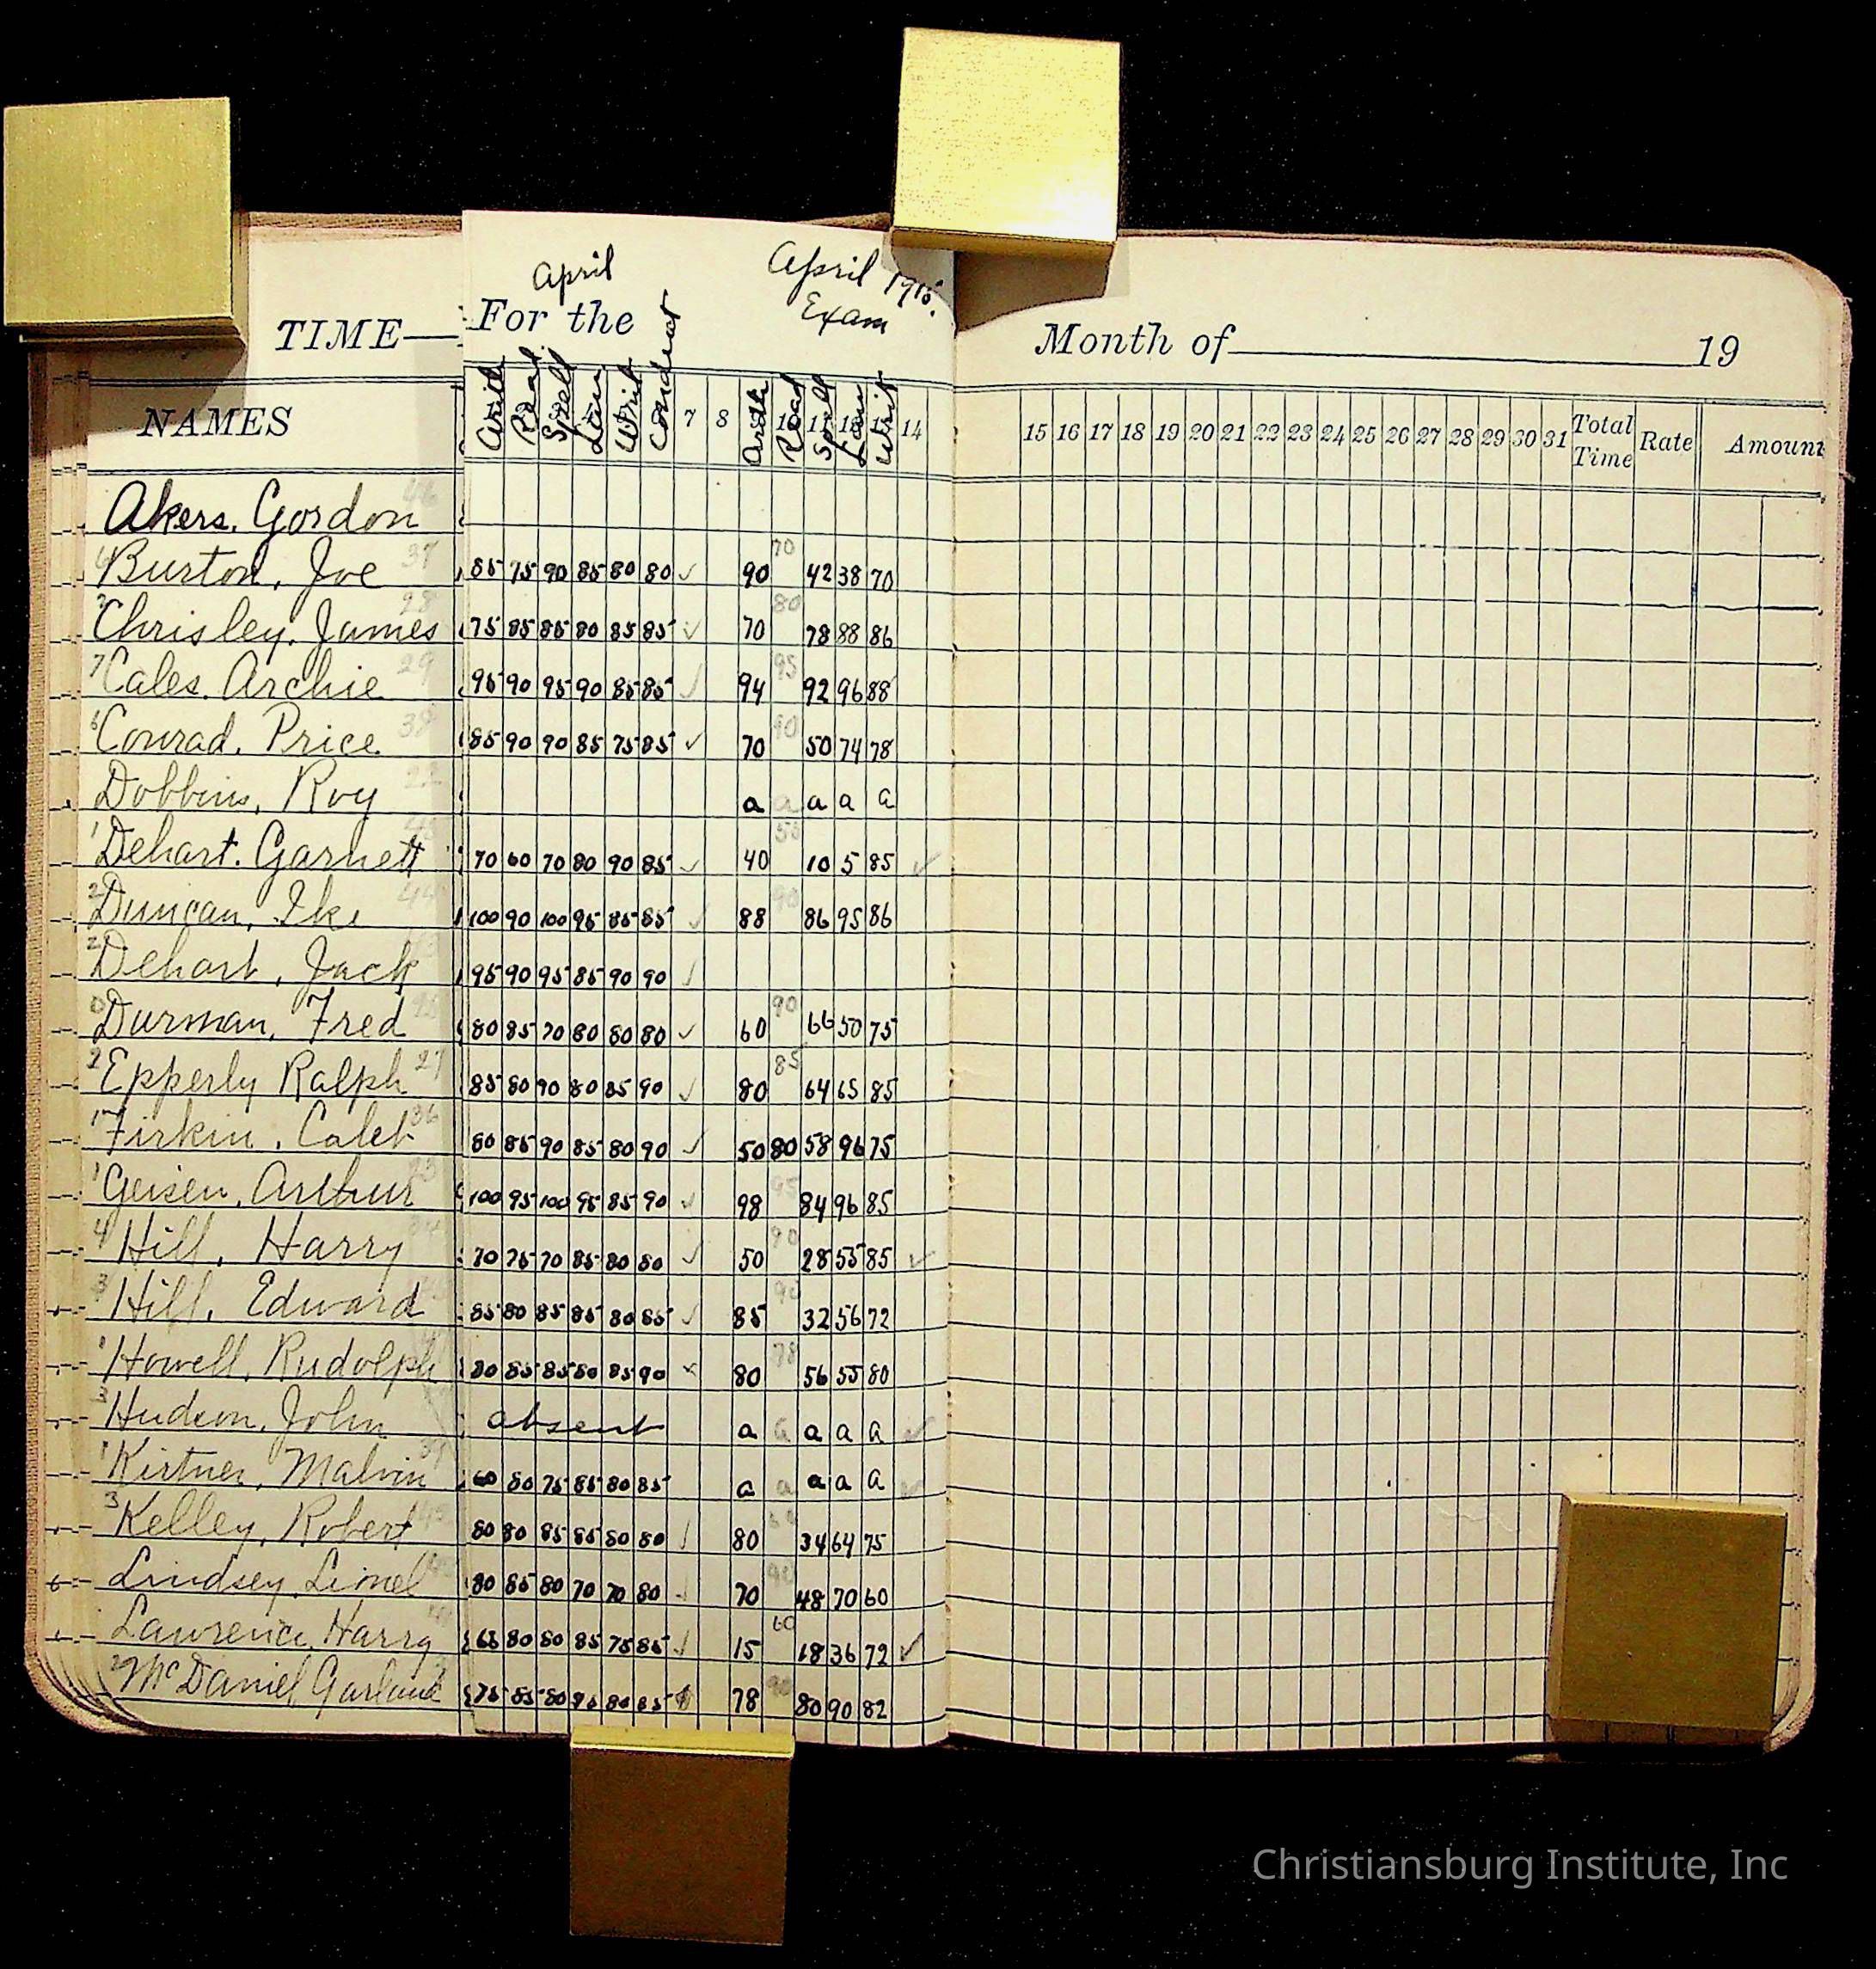 April April 1915.
Exam
TIME— For the Month of 19
NAMES Arith Read Spell Lan Writ Conduct 7 8 Arith Read Spell Lan Writ 14 15 16 17 18 19 20 21 22 23 24 25 26 27 28 29 30 31 Total Time Rate Amount
Akers, Gordon 46
Burton, Joe 37 85 75 90 85 80 80 ✓ 90 70 42 38 70
Chrisley, James 28 75 85 85 80 85 85 ✓ 70 80 78 88 86
7 Cales, Archie 29 95 90 95 90 85 85 ✓ 94 95 92 96 88
6 Conrad, Price 38 85 90 90 85 75 85 ✓ 70 90 50 74 78
Dobbins, Roy a a a a a
1 Dehart, Garnett 70 60 70 80 90 85 ✓ 40 10 5 85 ✓
2 Duncan, Ike 44 100 90 100 95 85 85 ✓ 88 90 86 95 86
2 Dehart, Jack 95 90 95 85 90 90 ✓
0 Durman, Fred 80 85 70 80 80 80 ✓ 60 90 66 50 75
2 Epperly Ralph 27 85 80 90 80 85 90 ✓ 80 85 64 65 85
17 Firkin, Caleb 36 80 85 90 85 80 90 ✓ 50 80 58 96 75
1 Geisen, Arthur 100 95 100 95 85 90 ✓ 98 95 84 96 85
4 Hill, Harry 70 75 70 85 80 80 ✓ 50 90 28 55 85 ✓
3 Hill, Edward 85 80 85 85 80 85 ✓ 85 32 56 72
Howell, Rudolph 80 85 85 80 85 90 80 78 56 55 80
3 Hudson, John absent a a a a a ✓
1 Kirtner, Malvin 60 80 75 85 80 85 a a a a a ✓
3 Kelley, Robert 80 80 85 85 80 80 ✓ 80 34 64 75
Lindsey, Lionel 80 85 80 70 70 80 70 90 48 70 60
Lawrence, Harry 65 80 80 85 75 85 ✓ 15 60 18 36 72 ✓
McDaniel Garland 75 85 80 80 85 78 80 90 82
Christiansburg Institute, Inc